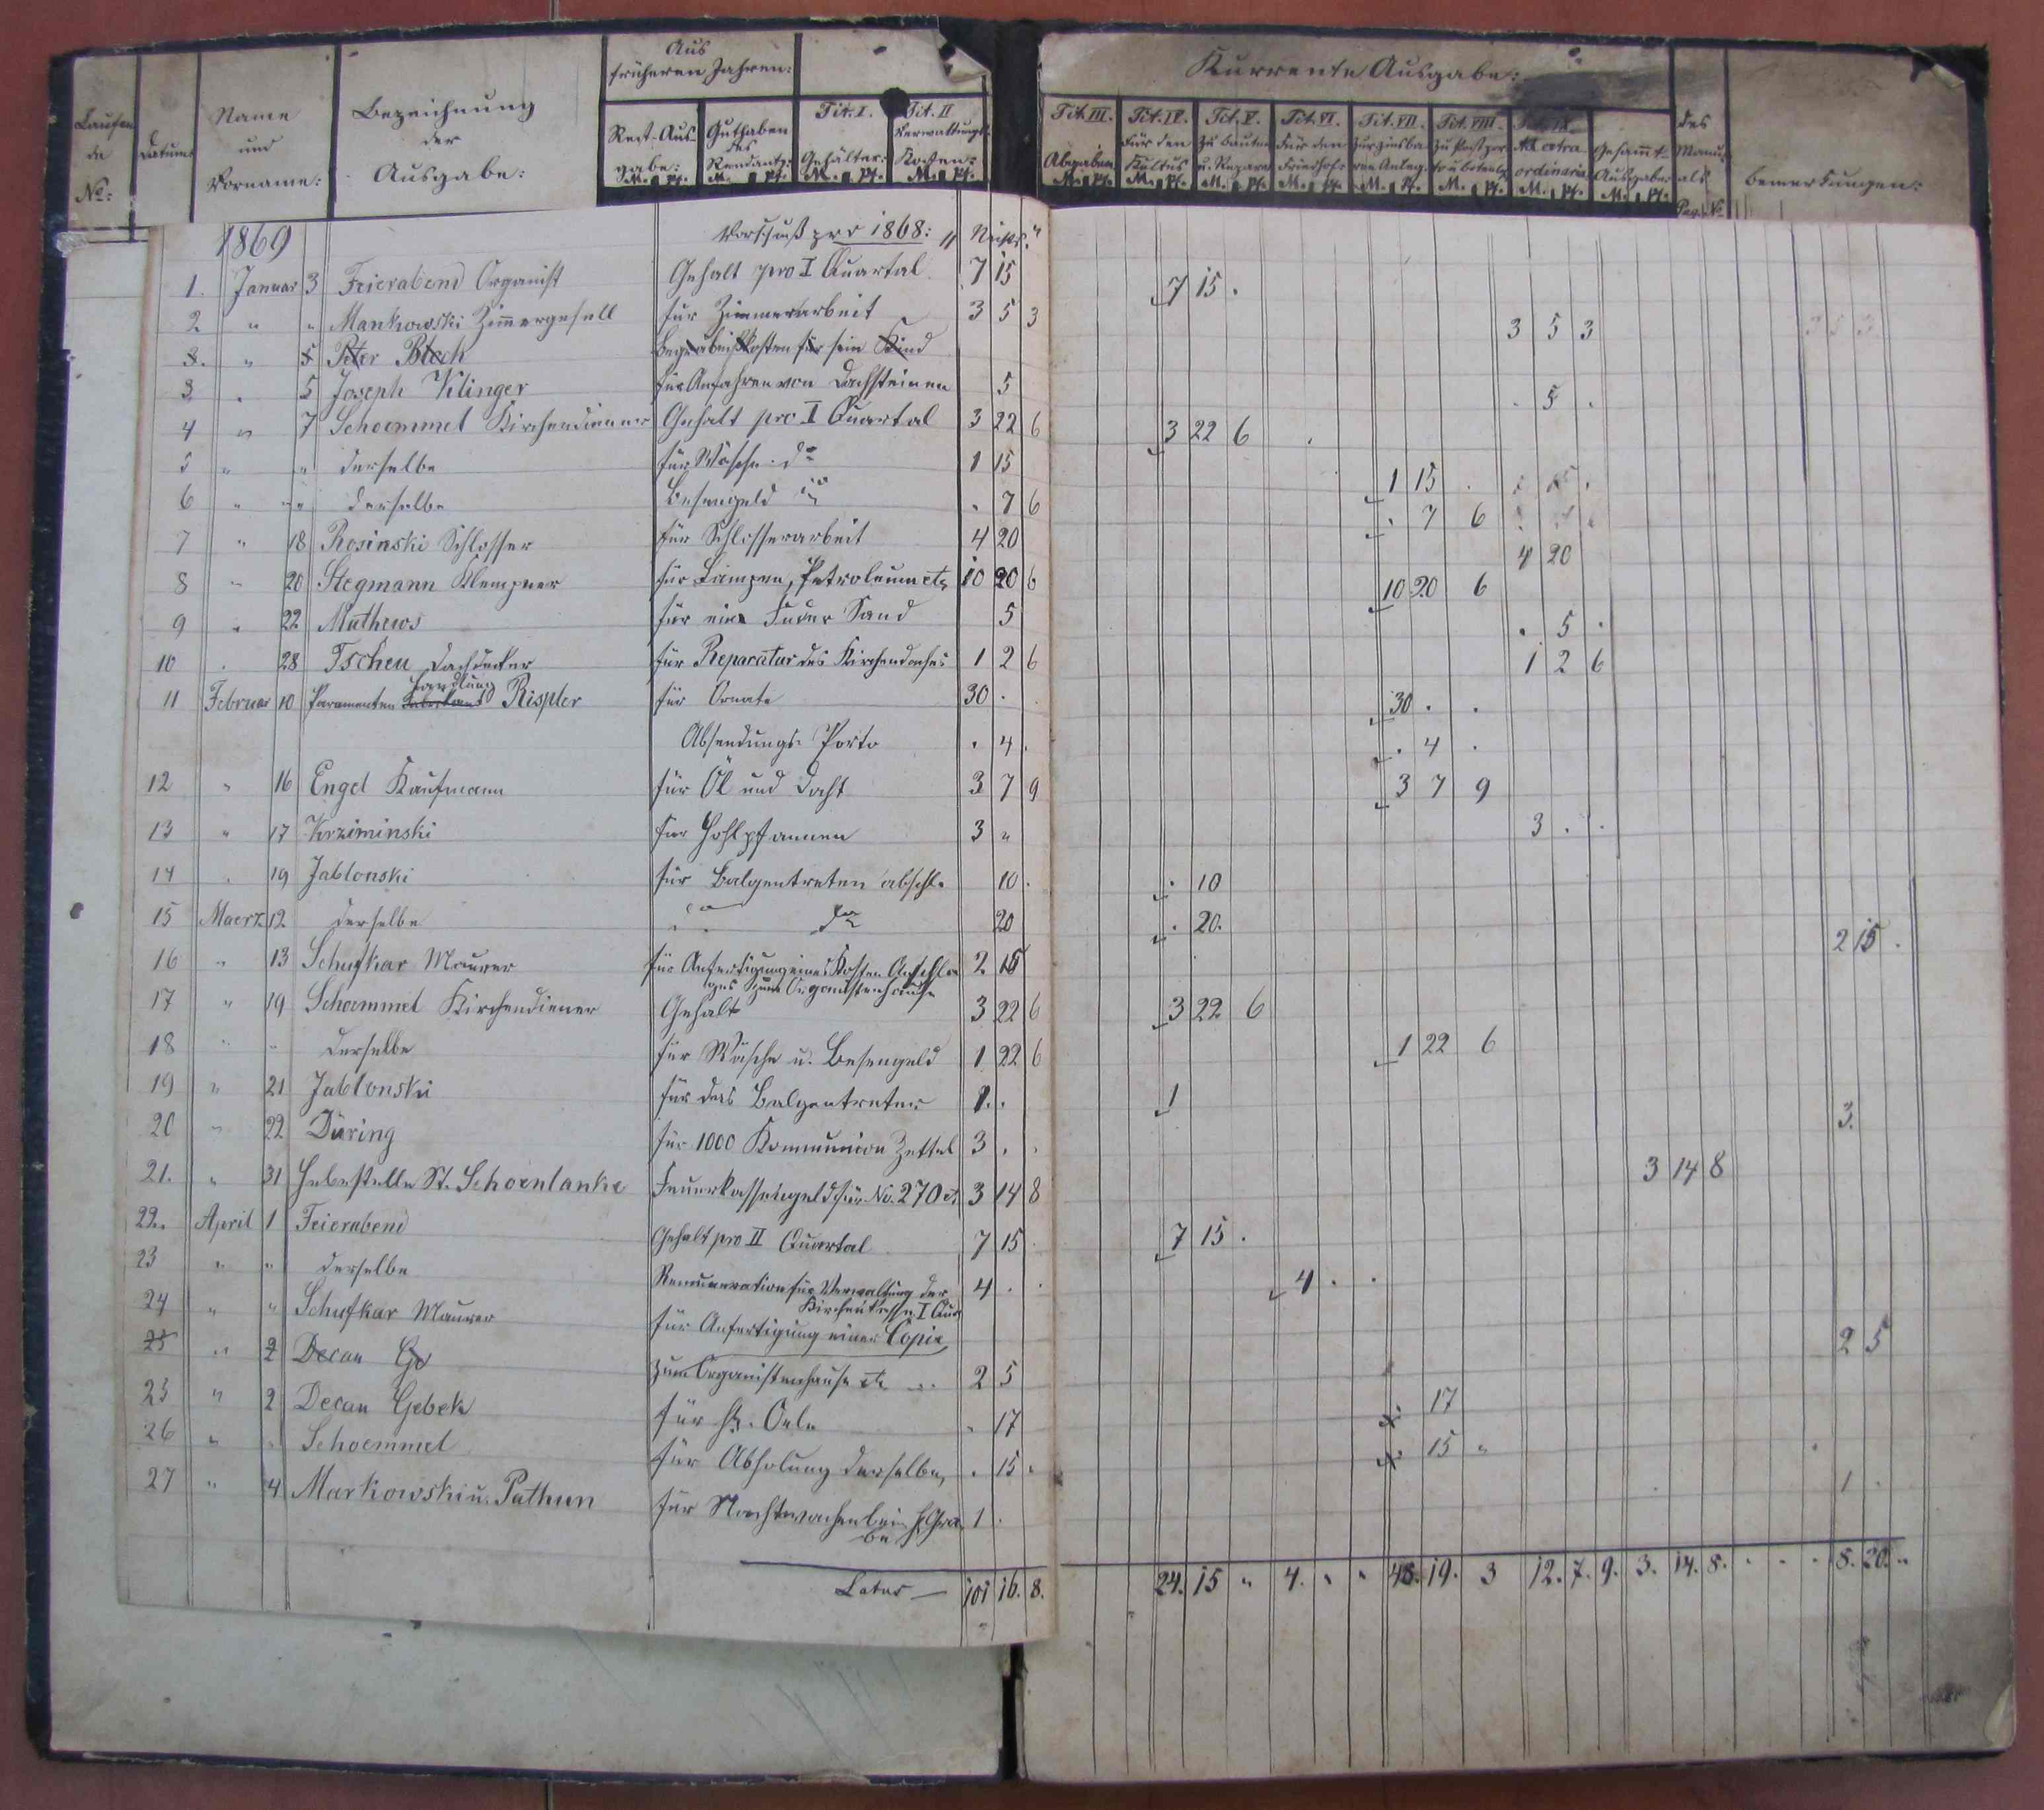 Laufen
de
No:
Datum:
Name
und
Vorname:
Bezeichnung
der
Ausgabe:
Aus
früheren Jahren:
Rest-Aus
gabe:
M. Pf.
Guthaben
des
Rendanten:
M. Pf.
Tit. I.
Gehälter:
M. Pf.
Tit. II
Verwaltungs
Kosten:
M. Pf.
Kurrente Ausgabe:
Tit. III.
Abgaben
M. Pf.
Tit. IV.
Für den
Kultus
M. Pf.
Tit. V.
Zu Bauten
u. Repara
M. Pf.
Tit. VI.
Für den
Friedhof:
M. Pf.
Tit. VII.
Zur zinsba
ren Anleg.
M. Pf.
Tit. VIII.
M. Pf.
Tit. IX.
Extra
ordinaria
M. Pf.
Gesammt-
Ausgabe:
M. Pf.
des
Manu-
als
Pag. No
Bemerkungen:
1869 Vorschuß pro 1868: " Nichts "
1. Januar 3 Feierabend Organist Gehalt pro I Quartal 7 15 7 15 .
2 " " Mankowski Zimmergesell für Zimmerarbeit 3 5 3 3 5 3
3. " 5 Peter Blech Begräbnißkosten für sein Kind
3 . 5 Joseph Klinger für Anfahren von Dachsteinen 5 . 5 .
4 " 7 Schoemmel Kirchendiener Gehalt pro I Quartal 3 22 6 3 22 6
5 " " derselbe für Wäsche do 1 15 1 15 .
6 " " derselbe Besengeld do . 7 6 . 7 6
7 " 18 Rosinski Schlosser für Schlosserarbeit 4 20 4 20
8 " 20 Stegmann Klempner für Lampen, Petroleum etc 10 20 6 10 20 6
9 . 22 Mathews für ein Fuder Sand 5 . 5 .
10 . 28 Tscheu Dachdecker für Reparatur des Kirchendaches 1 2 6 1 2 6
handlung
11 Februar 10 Paramenten Rispler für Ornate 30 . 30 . .
Absendungs-Porto . 4 . . 4 .
12 " 16 Engel Kaufmann für Öl und Docht 3 7 9 3 7 9
13 " 17 Krziminski für Hohlpfannen 3 " 3 . .
14 . 19 Jablonski für Balgentreten abschl. 10 . . 10
15 Maerz 12 derselbe do do 20 . 20.
16 " 13 Schufkar Maurer für Anfertigung eines Kosten Anschla 2 15 2 15 .
ges zum Organistenhause
17 " 19 Schoemmel Kirchendiener Gehalt 3 22 6 3 22 6
18 " " derselbe für Wäsche u. Besengeld 1 22 6 1 22 6
19 " 21 Jablonski für das Balgentreten 1 . . 1
20 " 22 Düring für 1000 Kommunion Zettel 3 . . 3.
21. " 31 Hebestelle St. Schoenlanke Feuerkassengeld für No. 270 3 14 8 3 14 8
22. April 1 Feierabend Gehalt pro II Quartal 7 15 7 15 .
23 " " derselbe Remuneration für Verwaltung der 4 . . 4 . .
Kirchenkasse I Quar
24 " " Schufkar Maurer für Anfertigung einer Copie
25 " 2 Decan Ge zum Organistenhause etc 2 5 2 5
25 " 2 Decan Gebek für hl. Oele . 17 . 17
26 " " Schoemmel für Abholung derselben . 15 . . 15 "
27 " 4 Markowski u. Pathun für Nachtwachen beim h. Gra 1 . 1 .
be
Latus — 101 16. 8. 24. 15 " 4. " " 48. 19. 3 12. 7. 9. 3. 14. 8. . . . 8. 20. "